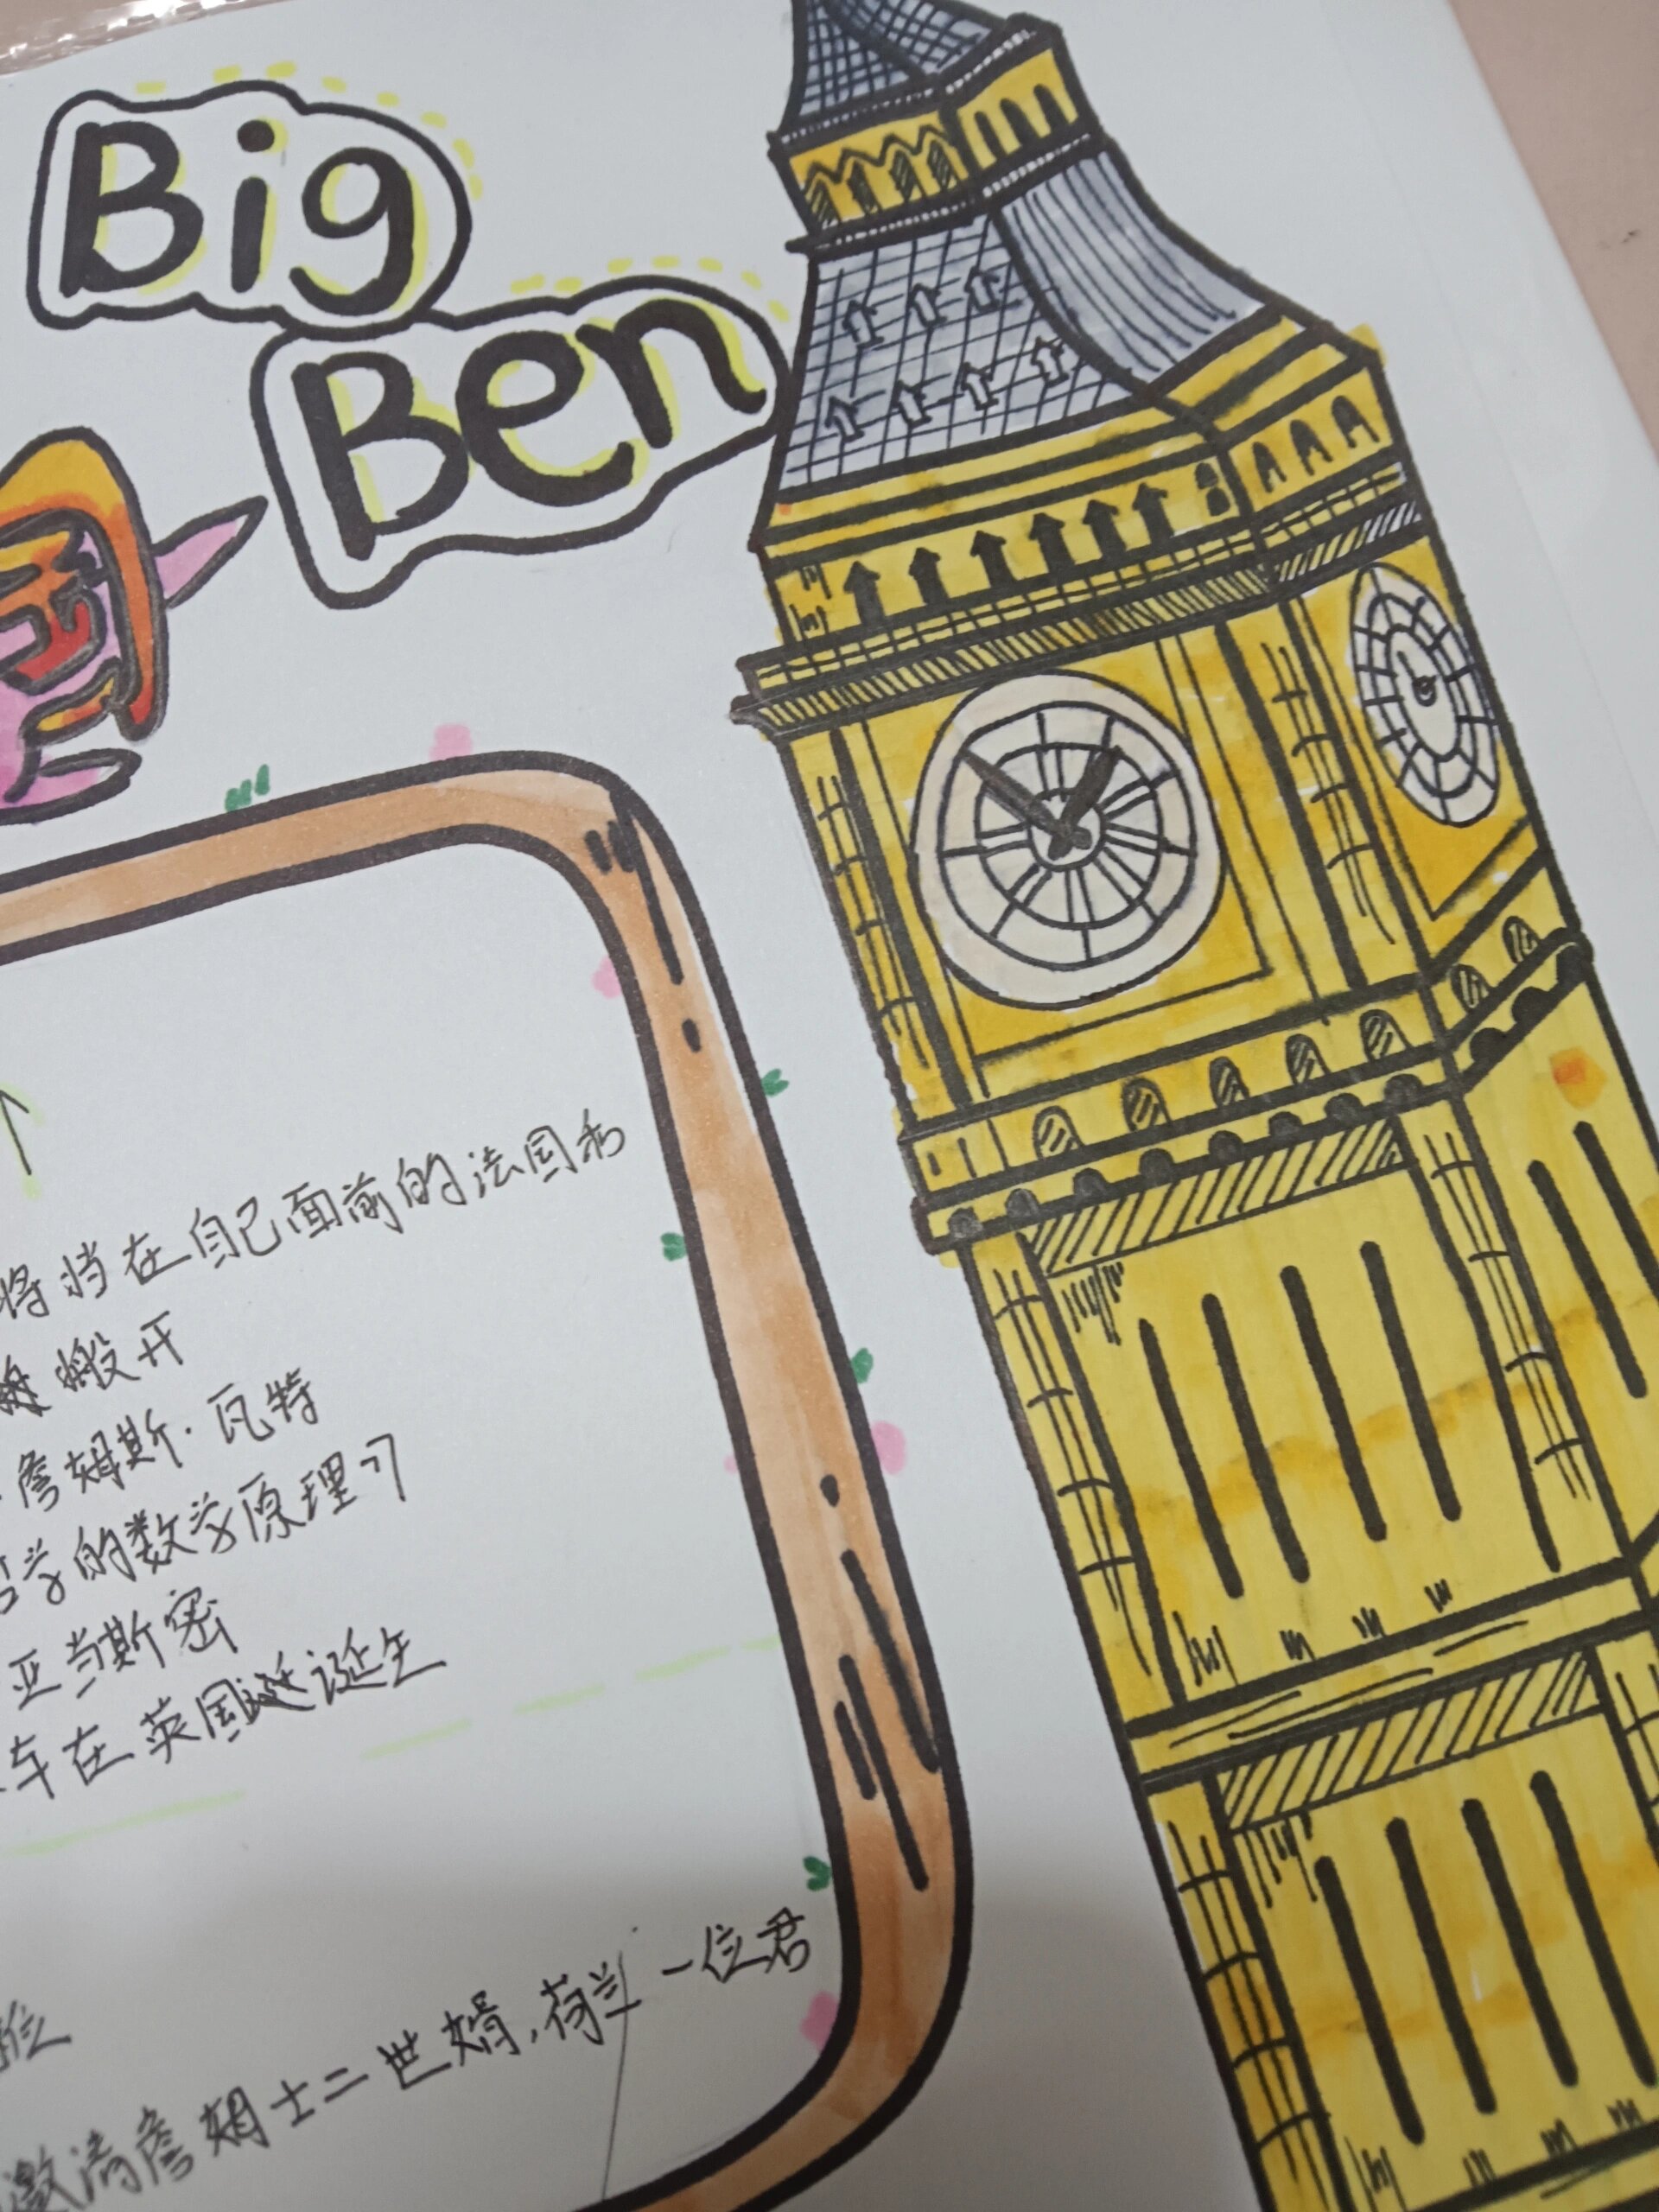 Big
Ben
国
将挡在自己面前的法国和
搬开
詹姆斯·瓦特
哲学的数学原理》
亚当斯密
车在英国诞生
位
邀请詹姆士二世婿,荷兰一位君